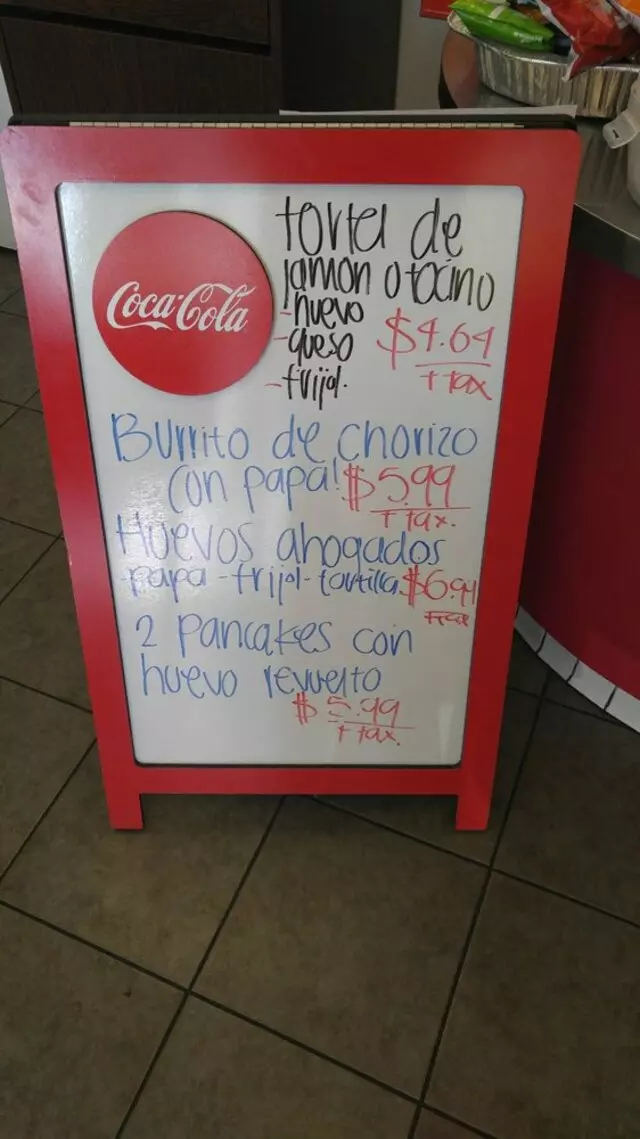 Coca-Cola
torta de
jamon o tocino
-huevo
-queso
-frijol.
$4.64
+ tax
Burrito de chorizo
con papa! $5.99
+ tax.
Huevos ahogados
-papa -frijol- tortilla $6.94
+tax
2 pancakes con
huevo revuelto
$5.99
+ tax.